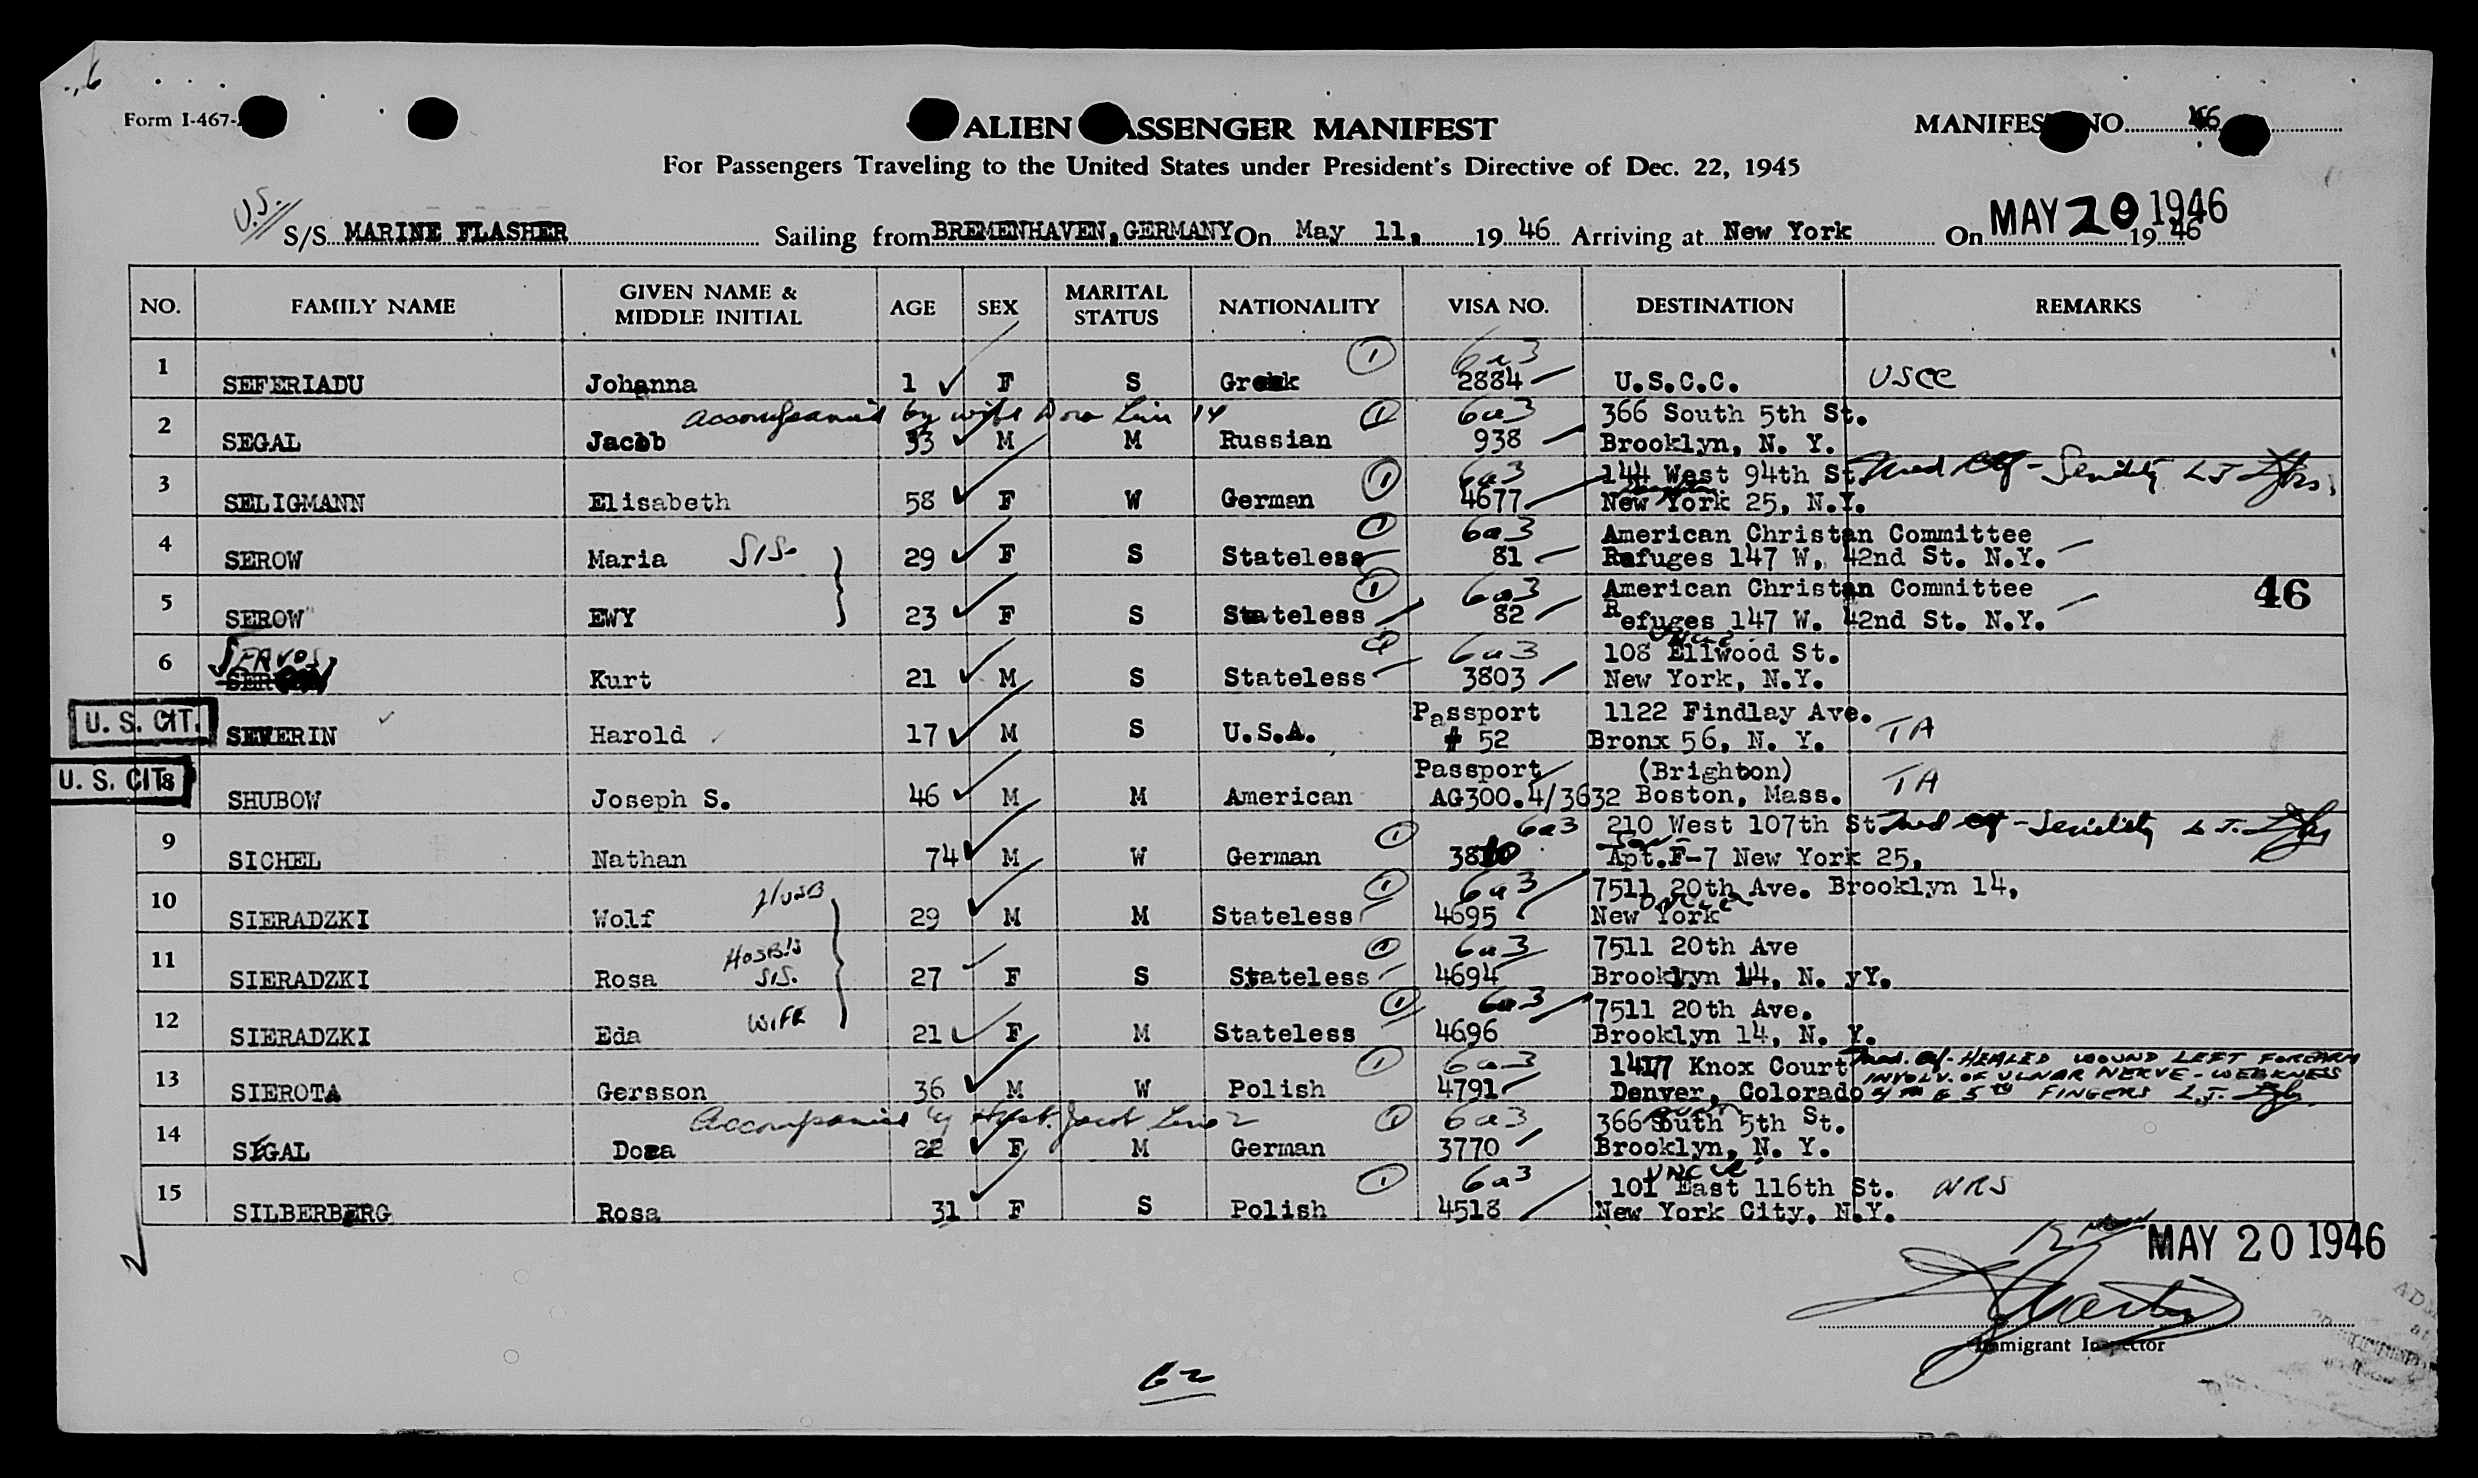 6
Form I-467-
ALIEN PASSENGER MANIFEST
MANIFEST NO. 46
For Passengers Traveling to the United States under President's Directive of Dec. 22, 1945
U.S.
S/S MARINE FLASHER Sailing from BREMENHAVEN, GERMANY On May 11, 19 46 Arriving at New York On MAY 20 1946 19 46
NO. FAMILY NAME GIVEN NAME & MIDDLE INITIAL AGE SEX MARITAL STATUS NATIONALITY VISA NO. DESTINATION REMARKS
1 SEFERIADU Johanna 1 F S Greek 1 6a3 2884 U.S.C.C. USCC
Accompanied by wife Dora Line 14
2 SEGAL Jacob 33 M M Russian 1 6a3 938 366 South 5th St. Brooklyn, N. Y.
3 SELIGMANN Elisabeth 58 F W German 1 6a3 4677 144 West 94th St. New York 25, N.Y. Med Ctf - Senility L.J.
4 SEROW Maria SIS. 29 F S Stateless 1 6a3 81 American Christan Committee Rafuges 147 W. 42nd St. N.Y.
5 SEROW EWY 23 F S Stateless 1 6a3 82 American Christan Committee Refuges 147 W. 42nd St. N.Y.
46
6 SERVOS Kurt 21 M S Stateless 1 6a3 3803 Uncle 108 Ellwood St. New York, N.Y.
U. S. CIT. SEVERIN Harold 17 M S U.S.A. Passport # 52 1122 Findlay Ave. Bronx 56, N. Y. TA
U. S. CIT. 8 SHUBOW Joseph S. 46 M M American Passport AG300.4/3632 (Brighton) Boston, Mass. TA
9 SICHEL Nathan 74 M W German 1 6a3 3810 210 West 107th St. Son Apt.F-7 New York 25, Med Ctf - Senility L.J.
10 SIERADZKI Wolf HUSB 29 M M Stateless 1 6a3 4695 7511 20th Ave. Brooklyn 14, Uncle New York
11 SIERADZKI Rosa HUSB'S SIS. 27 F S Stateless 1 6a3 4694 7511 20th Ave Brooklyn 14, N. yY.
12 SIERADZKI Eda WIFE 21 F M Stateless 1 6a3 4696 7511 20th Ave. Brooklyn 14, N. Y.
13 SIEROTA Gersson 36 M W Polish 1 6a3 4791 1417 Knox Court Denver, Colorado Med. Ctf. - HEALED WOUND LEFT FOREARM INVOLV. OF ULNAR NERVE - WEAKNESS 4TH & 5TH FINGERS L.J.
Accompanied by Husb. Jacob Line 2
14 SEGAL Dora 22 F M German 1 6a3 3770 366 South 5th St. Brooklyn, N. Y.
15 SILBERBERG Rosa 31 F S Polish 1 6a3 4518 UNCLE 101 East 116th St. New York City, N.Y. NRS
MAY 20 1946
Immigrant Inspector
62